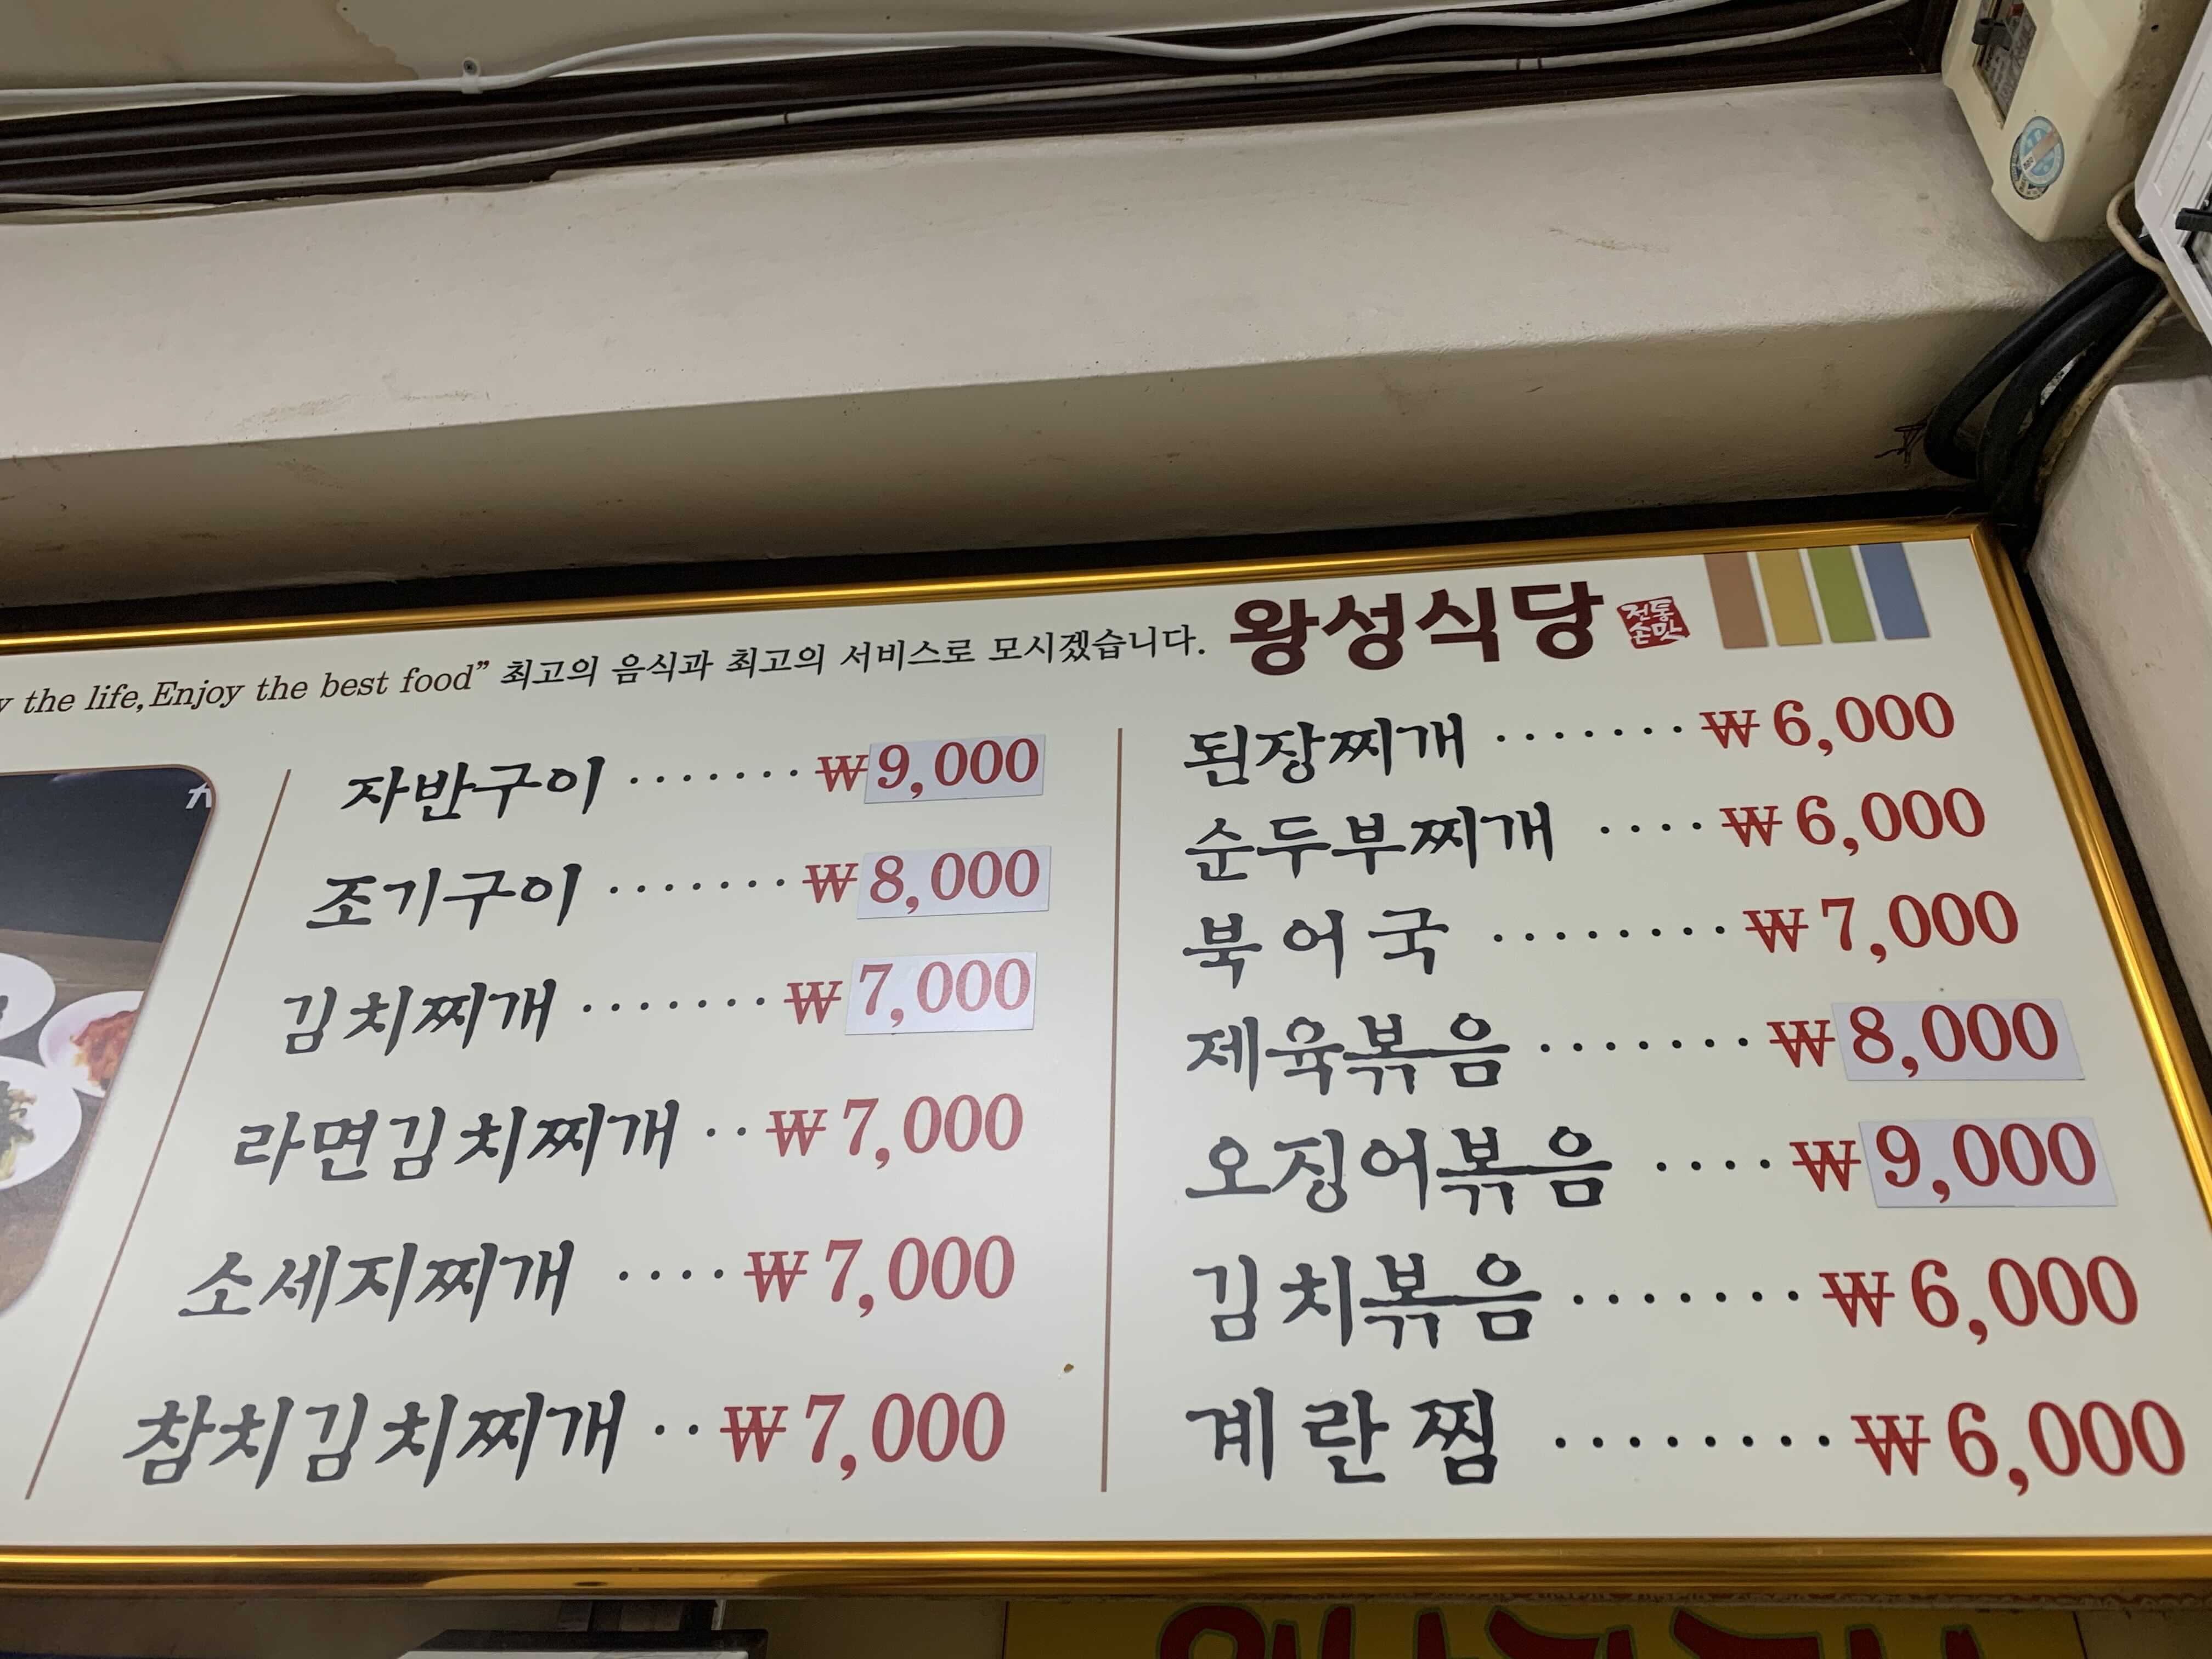 the life, Enjoy the best food" 최고의 음식과 최고의 서비스로 모시겠습니다. 왕성식당 전통손맛
자반구이 ······· ₩9,000
조기구이 ······· ₩8,000
김치찌개 ······· ₩7,000
라면김치찌개 ·· ₩7,000
소세지찌개 ···· ₩7,000
참치김치찌개 ·· ₩7,000
된장찌개 ······· ₩6,000
순두부찌개 ···· ₩6,000
북어국 ········ ₩7,000
제육볶음 ······· ₩8,000
오징어볶음 ···· ₩9,000
김치볶음 ······· ₩6,000
계란찜 ········ ₩6,000